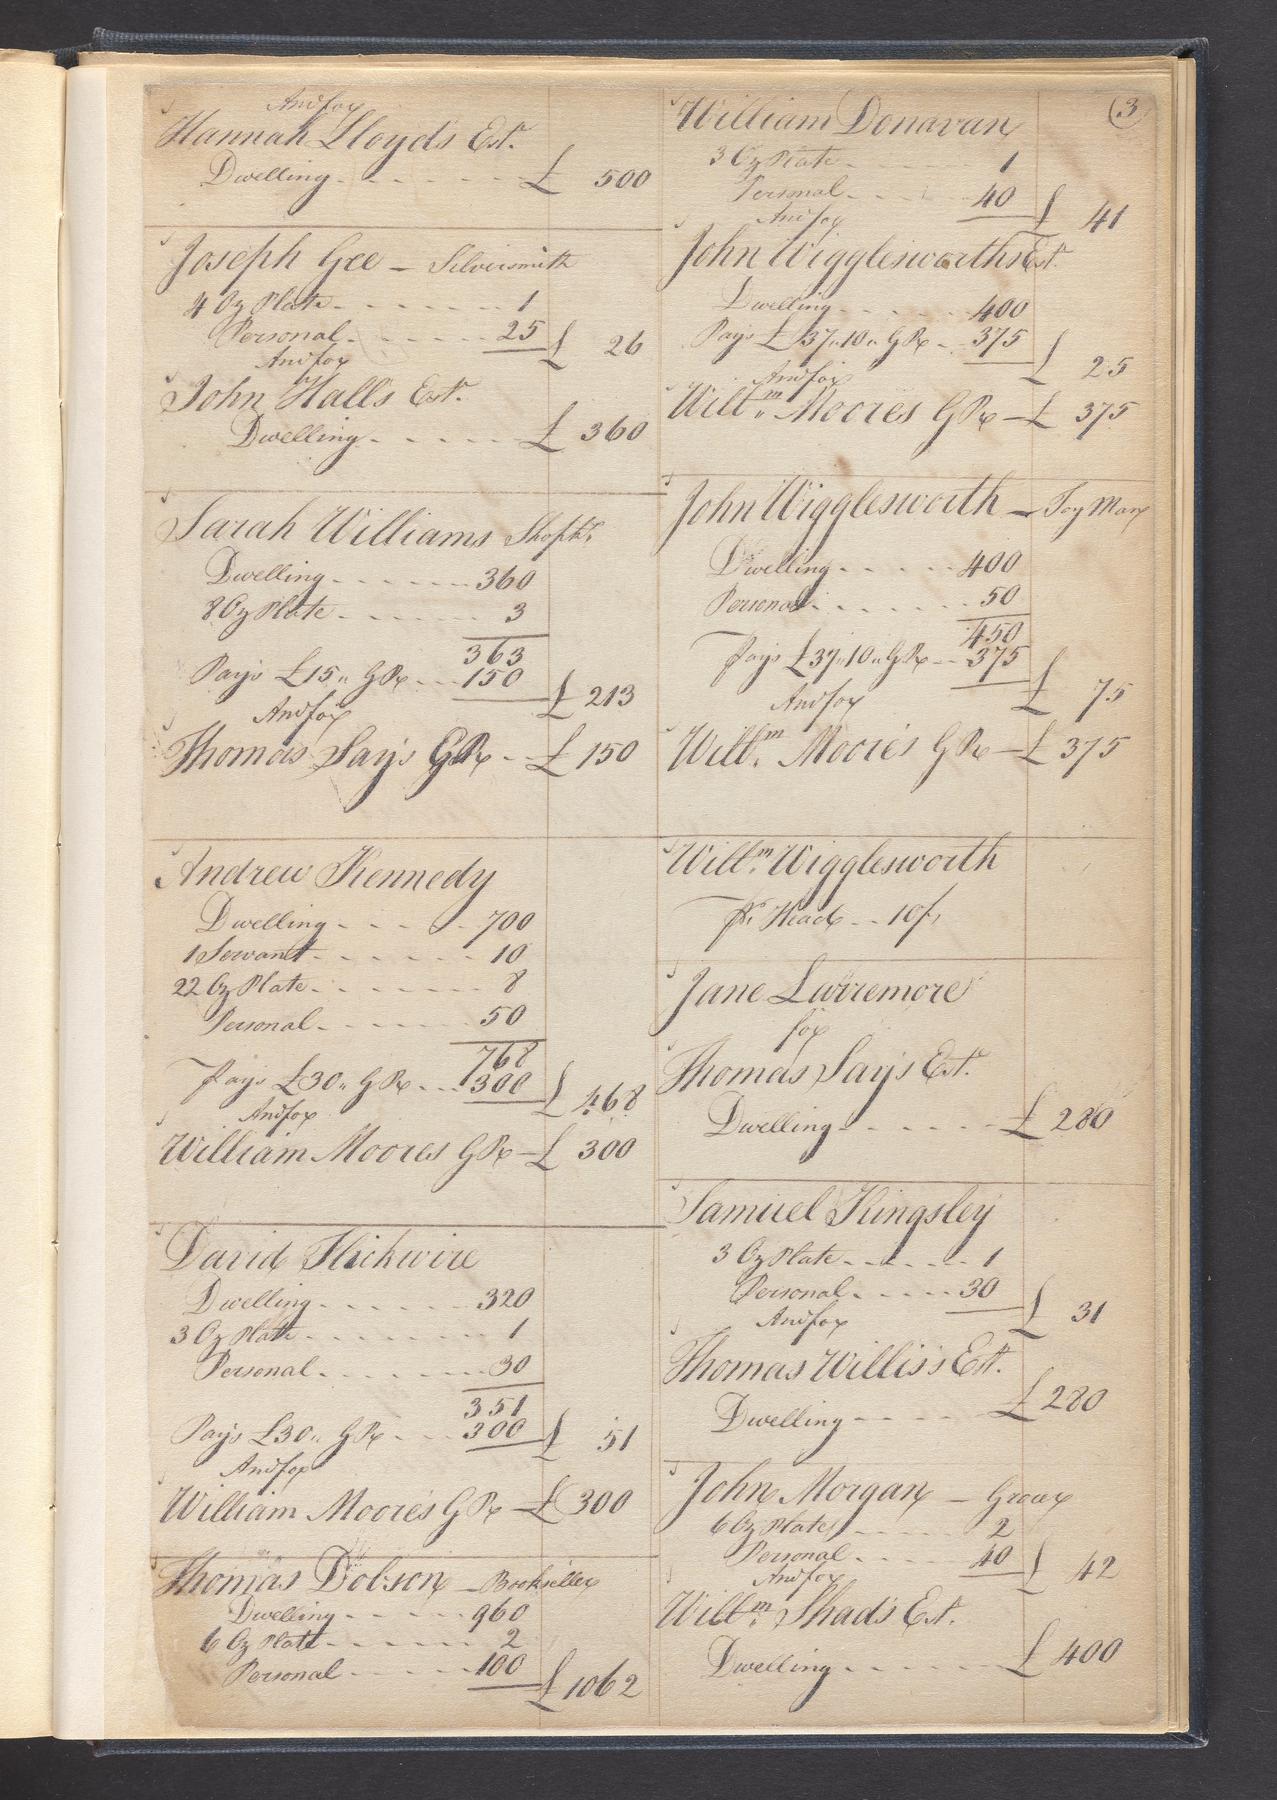 And for
Hannah Lloyd's Est.
Dwelling - - - - - - £ 500
Joseph Gee - Silversmith
4 Oz Plate - - - - - - 1
Personal - - - - - - 25 £ 26
And for
John Hall's Est.
Dwelling - - - - - - £ 360
Sarah Williams Shopkr.
Dwelling - - - - - - 360
8 Oz Plate - - - - - - 3
363
Pays £15 " G Rt - - - 150 £ 213
And for
Thomas Say's G Rt - - £ 150
Andrew Kennedy
Dwelling - - - - - 700
1 Servant - - - - - - 10
22 Oz Plate - - - - - - 8
Personal - - - - - - 50
768
Pays £30 " G Rt - - - 300 £ 468
And for
William Moores G Rt - £ 300
David Hickwire
Dwelling - - - - - - 320
3 Oz Plate - - - - - - 1
Personal - - - - - - 30
351
Pays £30 " G Rt - - - 300 £ 51
And for
William Moore's G Rt - £ 300
Thomas Dobson - Bookseller
Dwelling - - - - - 960
6 Oz Plate - - - - - - 2
Personal - - - - - 100 £ 1062
(3
William Donavan
3 Oz Plate - - - - - 1
Personal - - - - 40 £ 41
And for
John Wigglesworths Est.
Dwelling - - - - - 400
Pays £37 " 10 " G Rt - - 375 £ 25
And for
Willm. Moores G Rt - £ 375
John Wigglesworth - Toy Man
Dwelling - - - - - 400
Personal - - - - - - 50
450
Pays £37 " 10 " G Rt - - 375 £ 75
And for
Willm. Moore's G Rt - £ 375
Willm. Wigglesworth
pr. Head - - 10/,
Jane Larremore
for
Thomas Say's Est.
Dwelling - - - - - - £ 280
Samuel Kingsley
3 Oz Plate - - - - - - 1
Personal - - - - - 30 £ 31
And for
Thomas Willis's Est.
Dwelling - - - - £ 280
John Morgan - Grocer
6 Oz Plate - - - - 2
Personal - - - - - 40 £ 42
And for
Willm. Shad's Est.
Dwelling - - - - - - £ 400